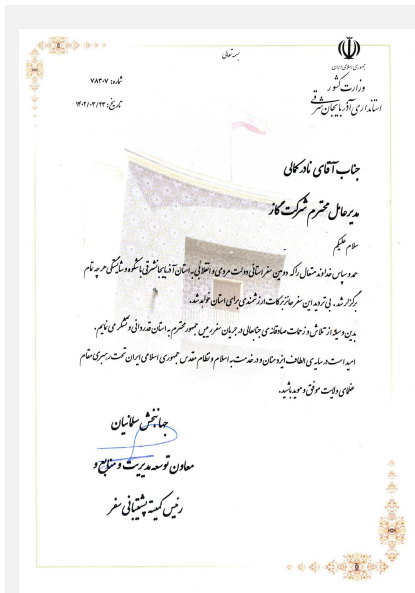 بسمه تعالی
جمهوری اسلامی ایران
وزارت کشور
استانداری آذربایجان شرقی
شماره: ۷۸۳۰۷
تاریخ: ۱۴۰۲/۰۳/۲۲
جناب آقای نادر کمالی
مدیرعامل محترم شرکت گاز
سلام علیکم
حمد و سپاس خداوند متعال را که دومین سفر استانی دولت مردمی و انقلابی به استان آذربایجانشرقی با شکوه و شایستگی هر چه تمام
برگزار شد. بی تردید این سفر حائز برکات ارزشمندی برای استان خواهد شد.
بدین وسیله از تلاش و زحمات صادقانه ی جنابعالی در جریان سفر رییس جمهور محترم به استان قدردانی و تشکر می نمایم.
امید است در سایه ی الطاف ایزد منان و در خدمت به اسلام و نظام مقدس جمهوری اسلامی ایران تحت رهبری مقام
عظمای ولایت موفق و موید باشید.
جهانبخش سلمانیان
معاون توسعه مدیریت و منابع و
رئیس کمیته پشتیبانی سفر